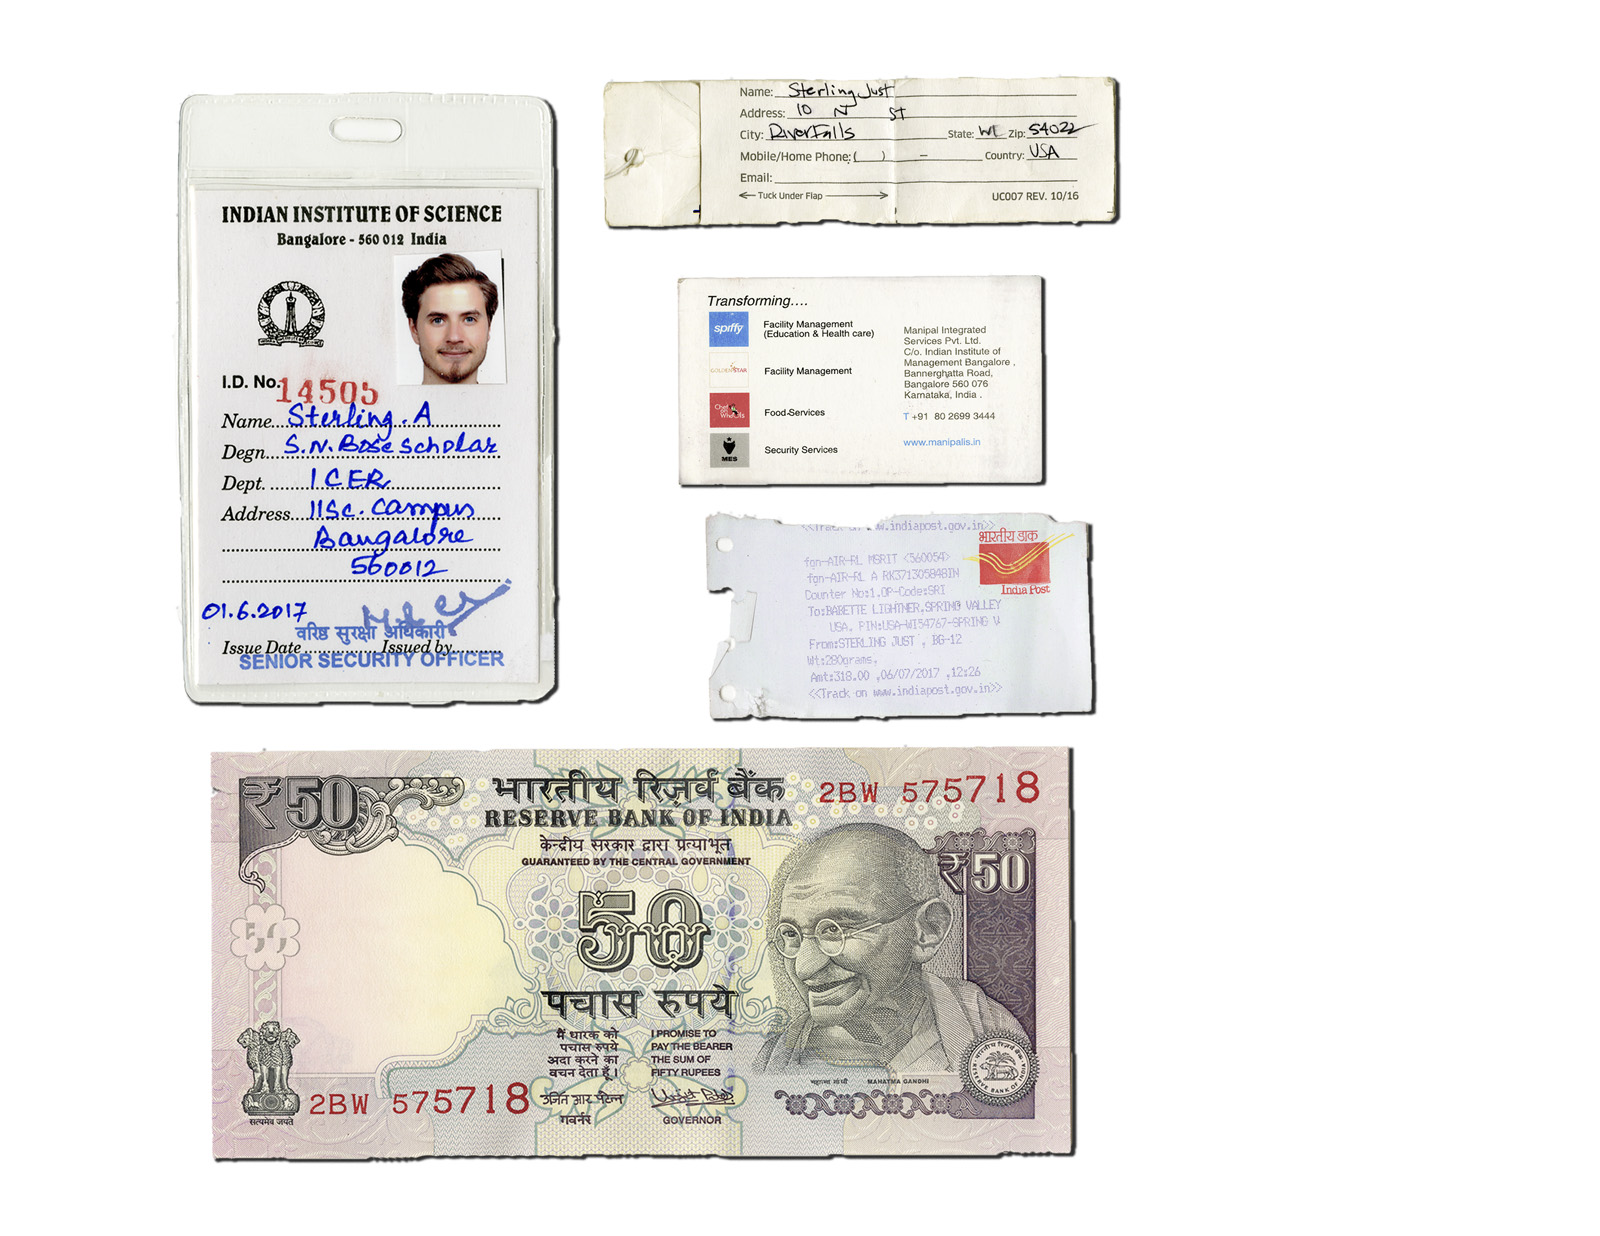 INDIAN INSTITUTE OF SCIENCE
Bangalore - 560 012 India
I.D. No. 14505
Name Sterling. A
Degn. S.N. Bose Scholar
Dept. ICER
Address IISc. Campus
Bangalore
560012
01.6.2017
वरिष्ठ सुरक्षा अधिकारी
Issue Date Issued by
SENIOR SECURITY OFFICER
Name: Sterling Just
Address: 10 N St
City: River Falls State: WI Zip: 54022
Mobile/Home Phone: ( ) – Country: USA
Email:
Tuck Under Flap UC007 REV. 10/16
Transforming....
spiffy Facility Management
(Education & Health care)
GOLDEN STAR Facility Management
Chef on Wheels Food-Services
MES Security Services
Manipal Integrated
Services Pvt. Ltd.
C/o. Indian Institute of
Management Bangalore ,
Bannerghatta Road,
Bangalore 560 076
Karnataka, India .
T +91 80 2699 3444
www.manipalis.in
<<Track on www.indiapost.gov.in>>
भारतीय डाक
India Post
fgn-AIR-RL MSRIT <560054>
fgn-AIR-RL A RK371305848IN
Counter No:1,OP-Code:SRI
To:BABETTE LIGHTNER,SPRING VALLEY
USA, PIN:USA-WI54767-SPRING V
From:STERLING JUST , BG-12
Wt:280grams,
Amt:318.00 ,06/07/2017 ,12:26
<<Track on www.indiapost.gov.in>>
₹50
भारतीय रिज़र्व बैंक
RESERVE BANK OF INDIA
2BW 575718
केन्द्रीय सरकार द्वारा प्रत्याभूत
GUARANTEED BY THE CENTRAL GOVERNMENT
₹50
50
पचास रुपये
मैं धारक को
पचास रुपये
अदा करने का
वचन देता हूँ।
I PROMISE TO
PAY THE BEARER
THE SUM OF
FIFTY RUPEES
महात्मा गांधी MAHATMA GANDHI
भारतीय रिज़र्व बैंक
RESERVE BANK OF INDIA
2BW 575718
गवर्नर
GOVERNOR
सत्यमेव जयते